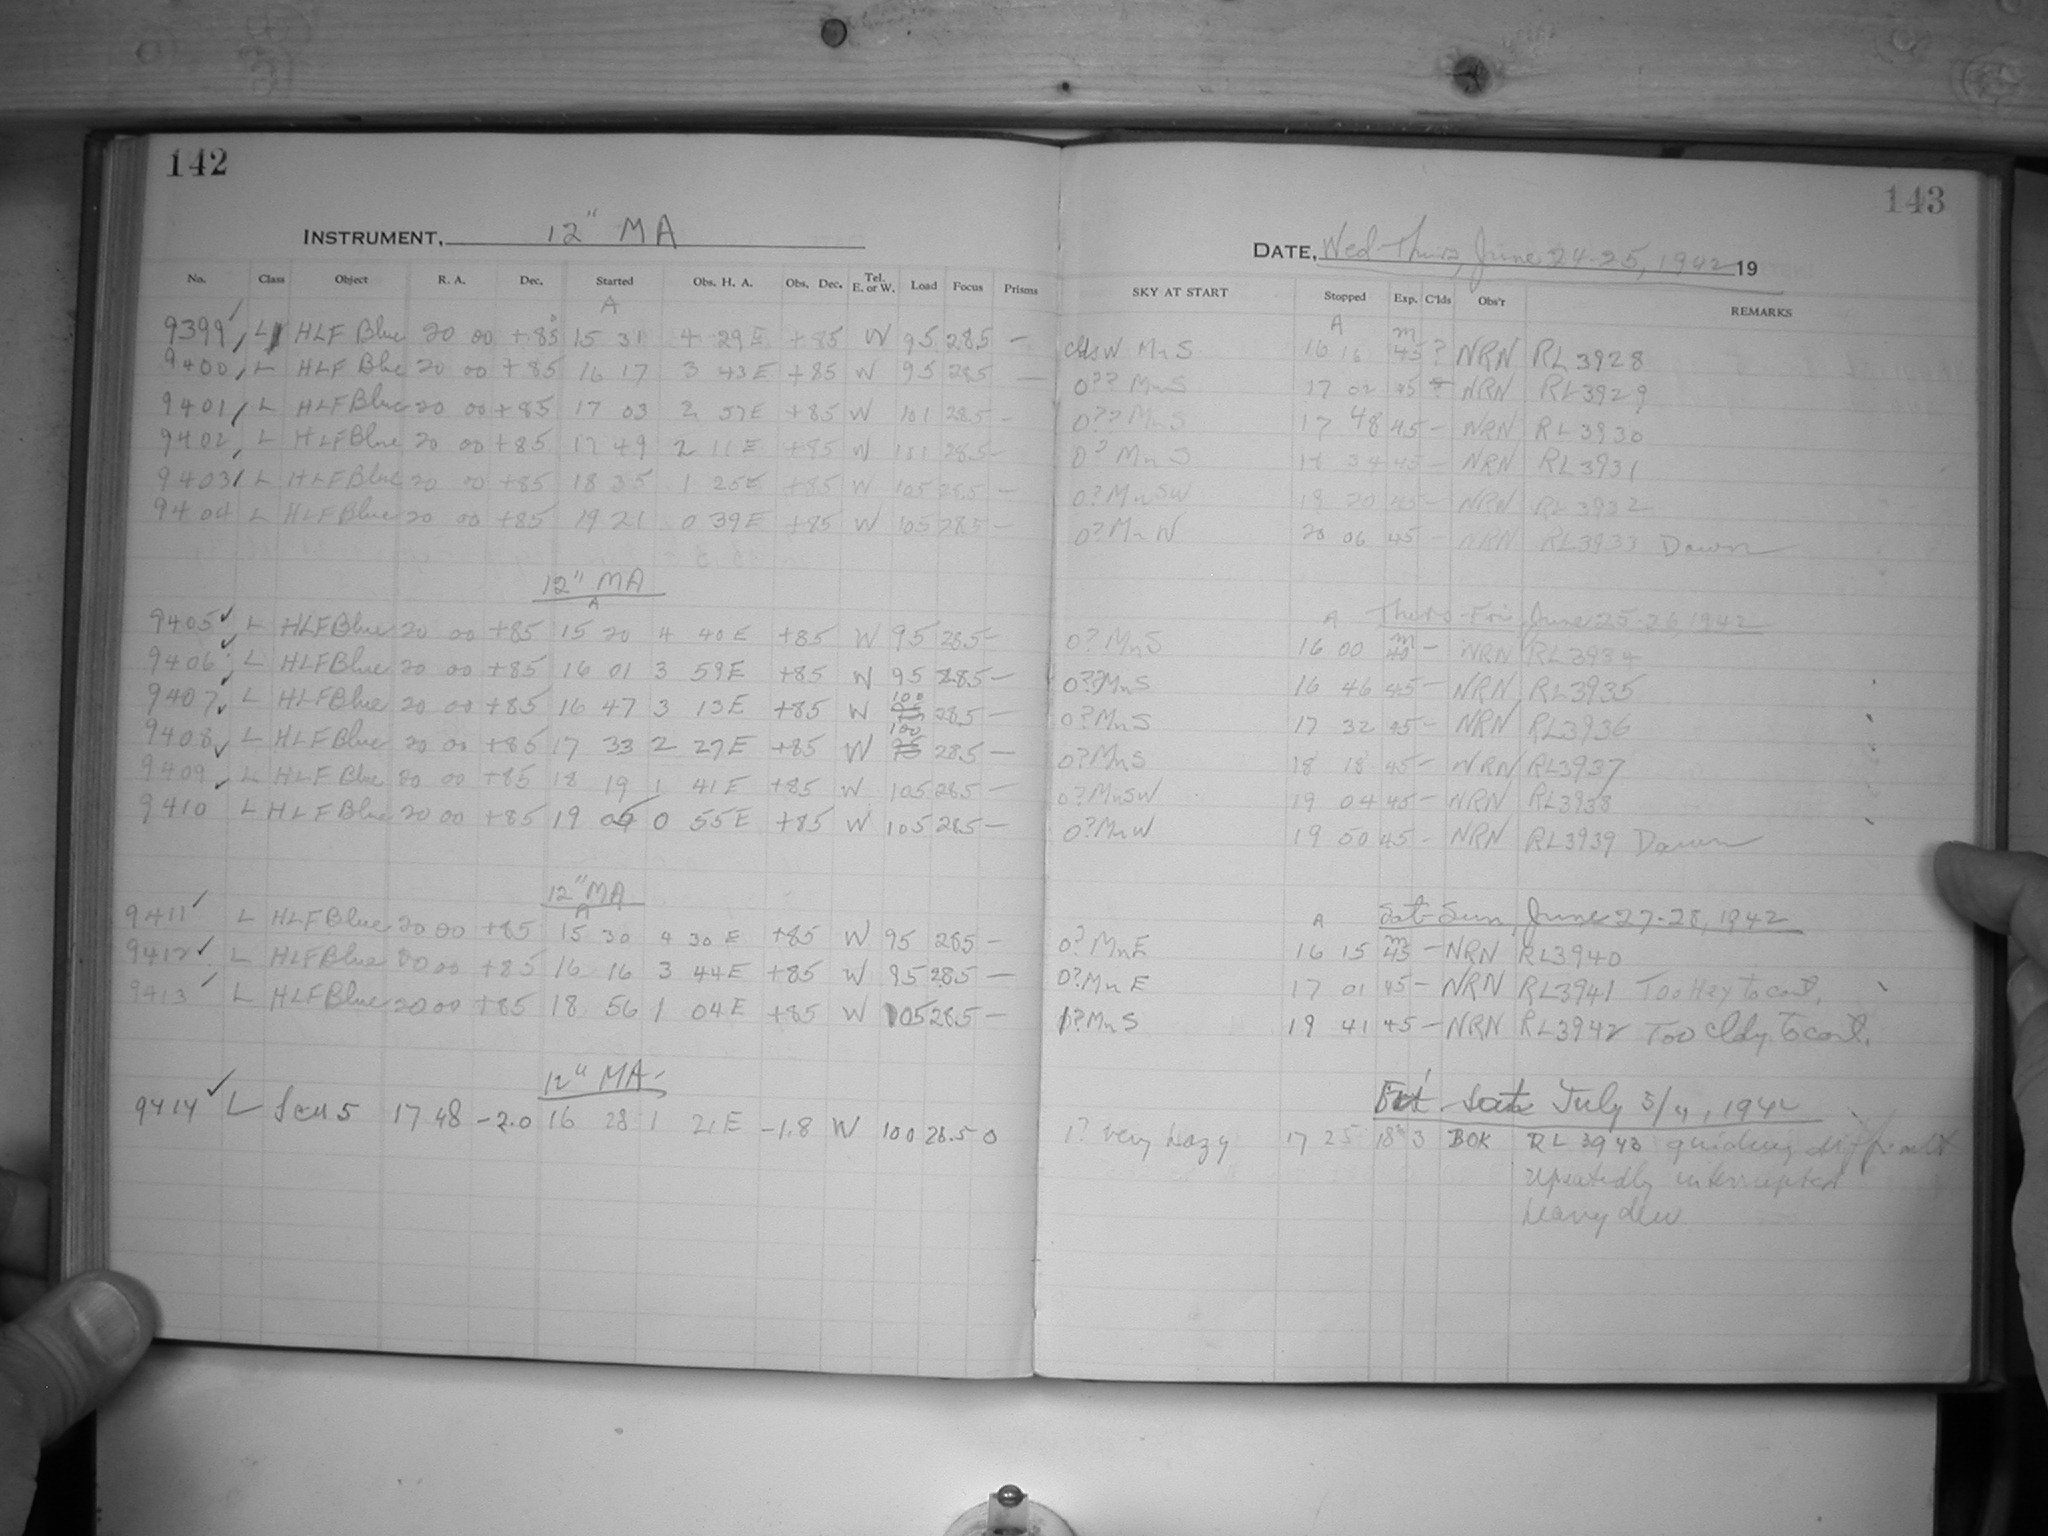 142
INSTRUMENT, 12" MA
No. Class Object R. A. Dec. Started Obs. H. A. Obs. Dec. Tel. E. or W. Load Focus Prisms
A
9399 L HLF Blue 20 00 +85° 15 31 4 29E +85 W 95 28.5 —
9400 L HLF Blue 20 00 +85 16 17 3 43E +85 W 95 28.5 —
9401 L HLF Blue 20 00 +85 17 03 2 57E +85 W 101 28.5 —
9402 L HLF Blue 20 00 +85 17 49 2 11E +85 W 101 28.5 —
9403 L HLF Blue 20 00 +85 18 35 1 25E +85 W 105 28.5 —
9404 L HLF Blue 20 00 +85 19 21 0 39E +85 W 105 28.5 —
12" MA
A
9405 L HLF Blue 20 00 +85 15 20 4 40E +85 W 95 28.5 —
9406 L HLF Blue 20 00 +85 16 01 3 59E +85 W 95 28.5 —
9407 L HLF Blue 20 00 +85 16 47 3 13E +85 W 100 28.5 —
9408 L HLF Blue 20 00 +85 17 33 2 27E +85 W 100 95 28.5 —
9409 L HLF Blue 20 00 +85 18 19 1 41E +85 W 105 28.5 —
9410 L HLF Blue 20 00 +85 19 05 0 55E +85 W 105 28.5 —
12" MA
A
9411 L HLF Blue 20 00 +85 15 30 4 30E +85 W 95 28.5 —
9412 L HLF Blue 20 00 +85 16 16 3 44E +85 W 95 28.5 —
9413 L HLF Blue 20 00 +85 18 56 1 04E +85 W 105 28.5 —
12" MA
9414 L Scu 5 17 48 -2.0 16 28 1 21E -1.8 W 100 28.5 0
143
DATE, Wed-Thurs, June 24-25, 1942 19
SKY AT START Stopped Exp. C'lds Obs'r REMARKS
A m
clds W Mn S 16 16 45 ? NRN RL3928
0?? Mn S 17 02 45 NRN RL3929
0?? Mn S 17 48 45 — NRN RL3930
0? Mn S 18 34 45 — NRN RL3931
0? Mn SW 19 20 45 — NRN RL3932
0? Mn W 20 06 45 — NRN RL3933 Dawn
A Thurs-Fri, June 25-26, 1942
0? Mn S 16 00 40 m — NRN RL3934
0?? Mn S 16 46 45 — NRN RL3935
0? Mn S 17 32 45 — NRN RL3936
0? Mn S 18 18 45 — NRN RL3937
0? Mn SW 19 04 45 — NRN RL3938
0? Mn W 19 50 45 — NRN RL3939 Dawn
A Sat-Sun, June 27-28, 1942
0? Mn E 16 15 45 m — NRN RL3940
0? Mn E 17 01 45 — NRN RL3941 Too Hzy to cont.
1? Mn S 19 41 45 — NRN RL3942 Too cldy to cont.
Fri - Sat July 3/4, 1942
1? very hazy 17 25 18 3 BOK RL 3943 guiding difficult
repeatedly interrupted
heavy dew